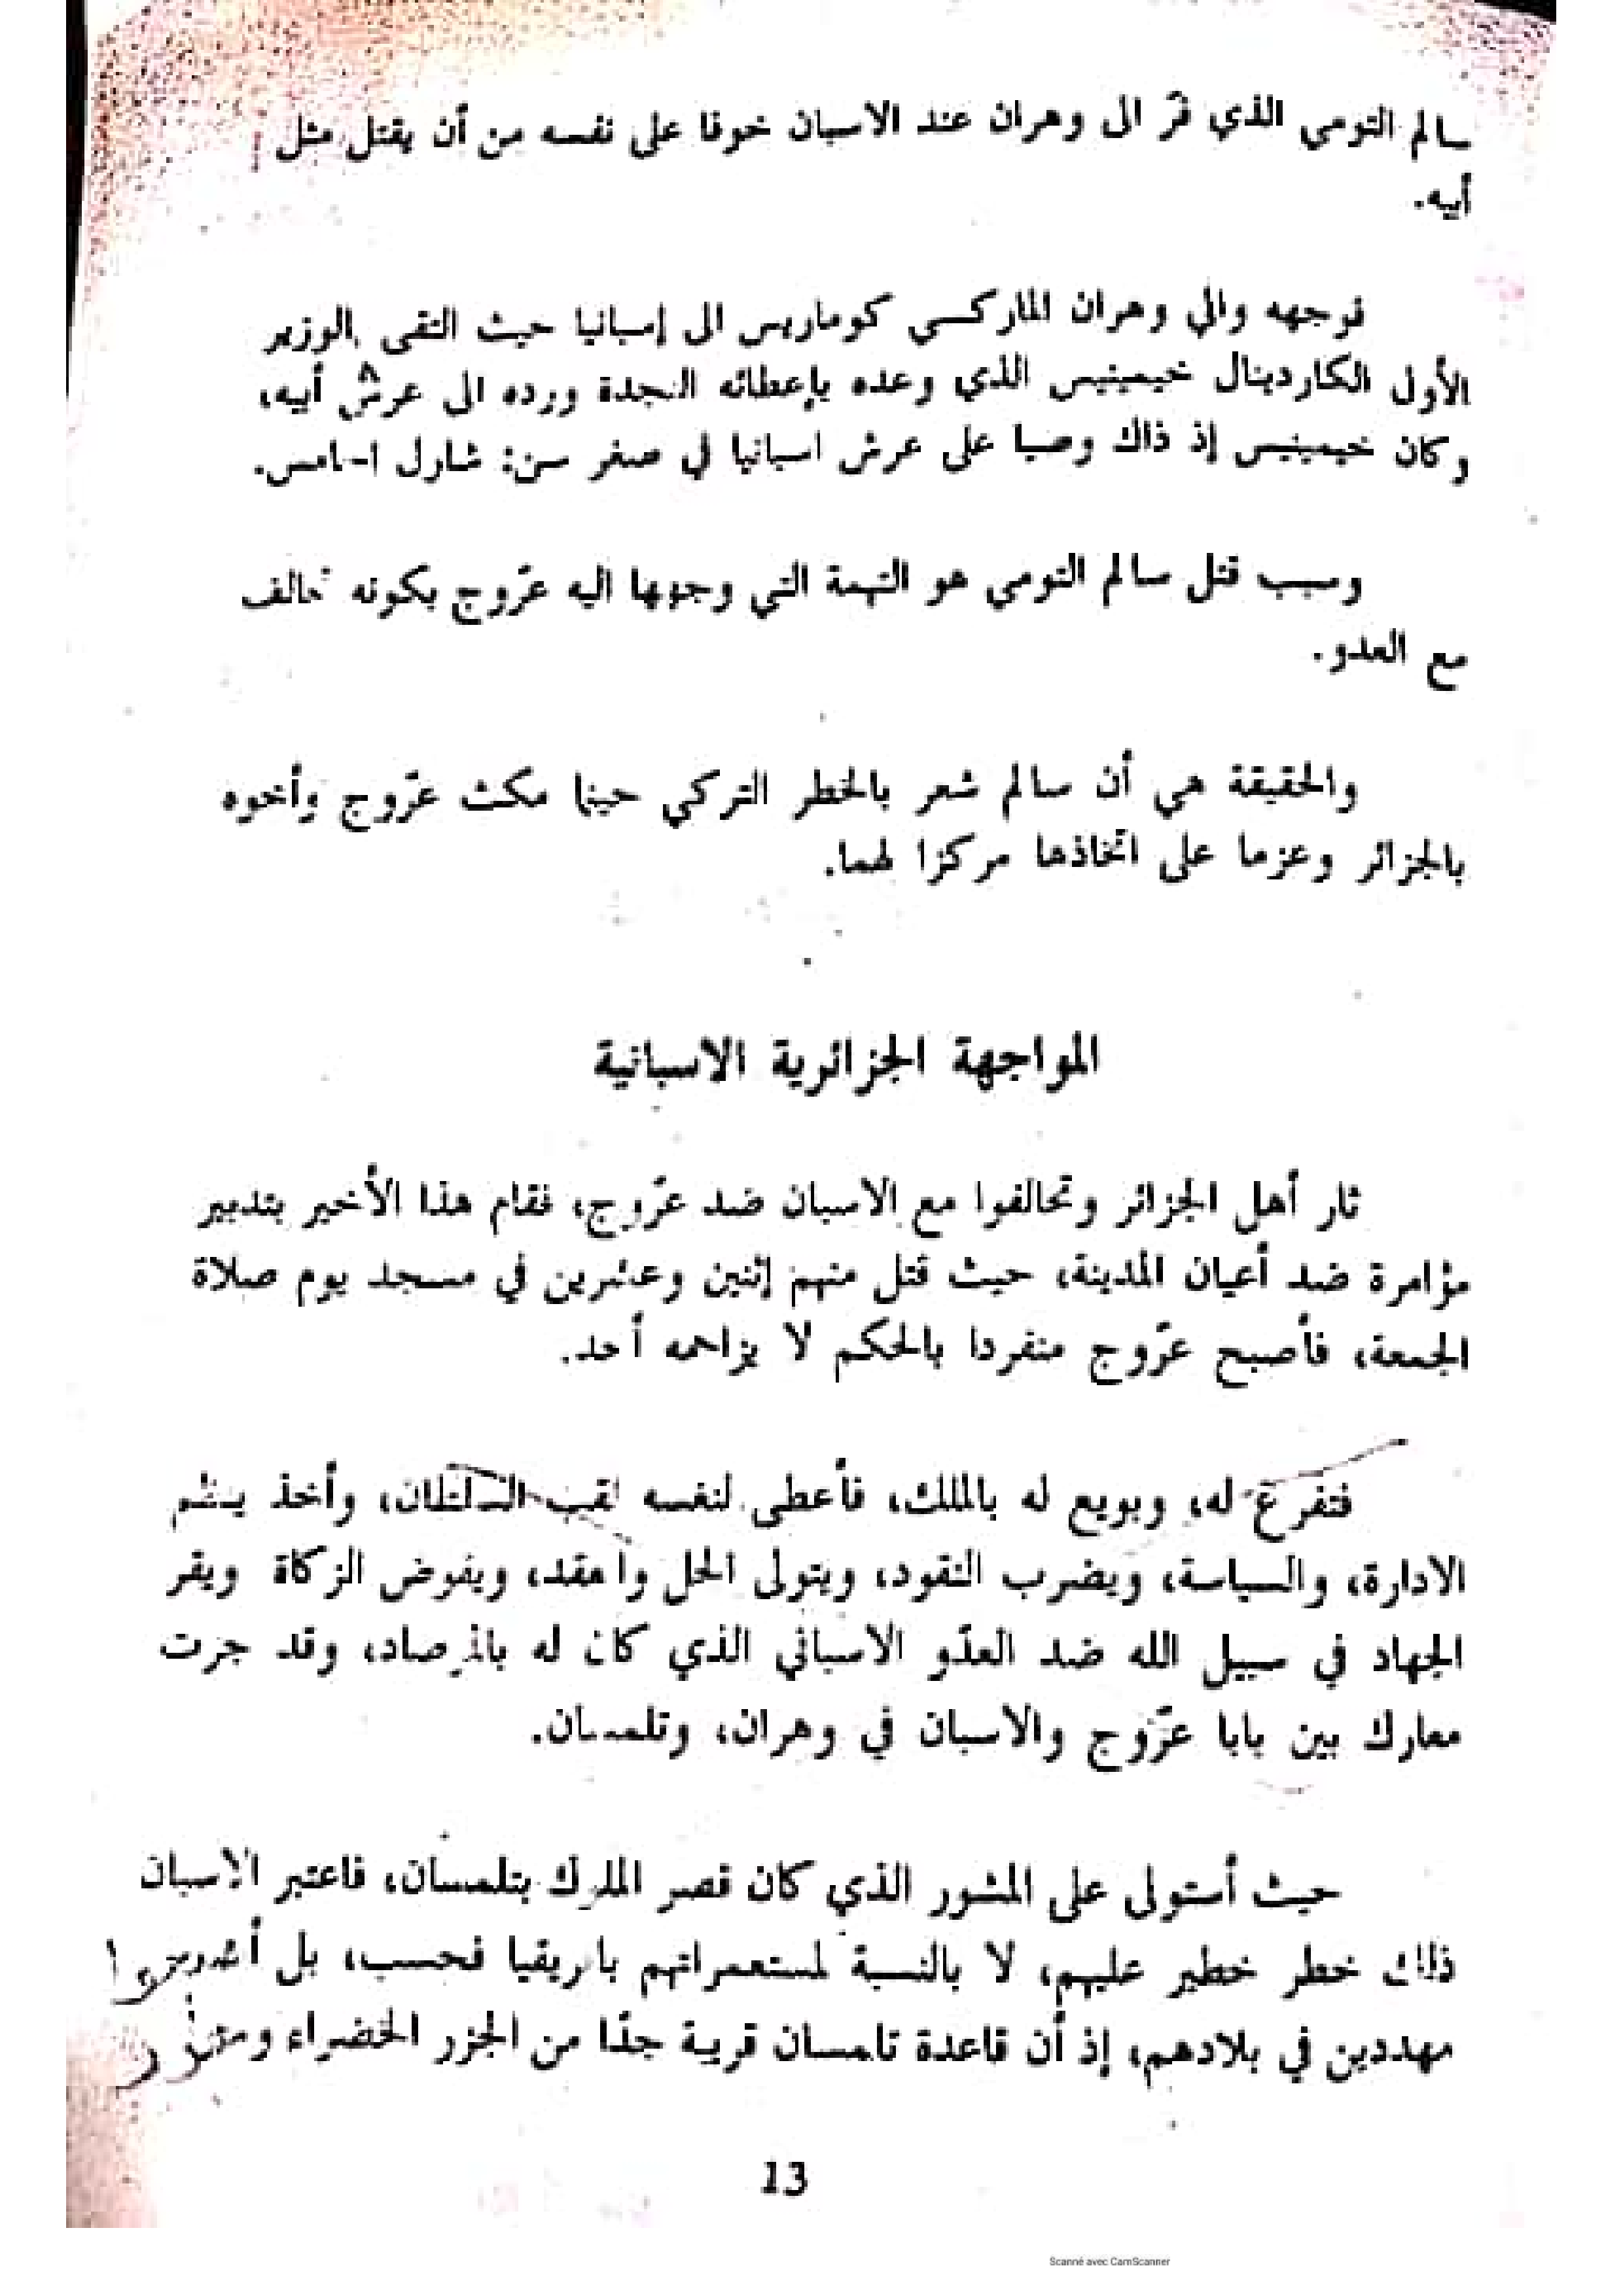 سالم التومي الذي فرّ الى وهران عند الاسبان خوفا على نفسه من أن يقتل مثل
أبيه.
فوجهه والي وهران الماركسي كوماريس الى إسبانيا حيث التقى الوزير
الأول الكاردينال خيمينيس الذي وعده بإعطائه النجدة ورده الى عرش أبيه،
وكان خيمينيس إذ ذاك وصيا على عرش اسبانيا في صغر سن: شارل الخامس.
وسبب قتل سالم التومي هو التهمة التي وجهها اليه عرّوج بكونه تحالف
مع العدو.
والحقيقة هي أن سالم شعر بالخطر التركي حينما مكث عرّوج وأخوه
بالجزائر وعزما على اتخاذها مركزا لهما.
المواجهة الجزائرية الاسبانية
ثار أهل الجزائر وتحالفوا مع الاسبان ضد عرّوج، فقام هذا الأخير بتدبير
مؤامرة ضد أعيان المدينة، حيث قتل منهم إثنين وعشرين في مسجد يوم صلاة
الجمعة، فأصبح عرّوج منفردا بالحكم لا يزاحمه أحد.
فتفرغ له، وبويع له بالملك، فأعطى لنفسه لقب السلطان، وأخذ ينظم
الادارة، والسياسة، ويضرب النقود، ويتولى الحل والعقد، ويفوض الزكاة ويقر
الجهاد في سبيل الله ضد العدّو الاسباني الذي كان له بالمرصاد، وقد جرت
معارك بين بابا عرّوج والاسبان في وهران، وتلمسان.
حيث أستولى على المشور الذي كان قصر الملوك بتلمسان، فاعتبر الاسبان
ذلك خطر خطير عليهم، لا بالنسبة لمستعمراتهم بافريقيا فحسب، بل
مهددين في بلادهم، إذ أن قاعدة تلمسان قريبة جدّا من الجزر الخضراء
13
Scanné avec CamScanner